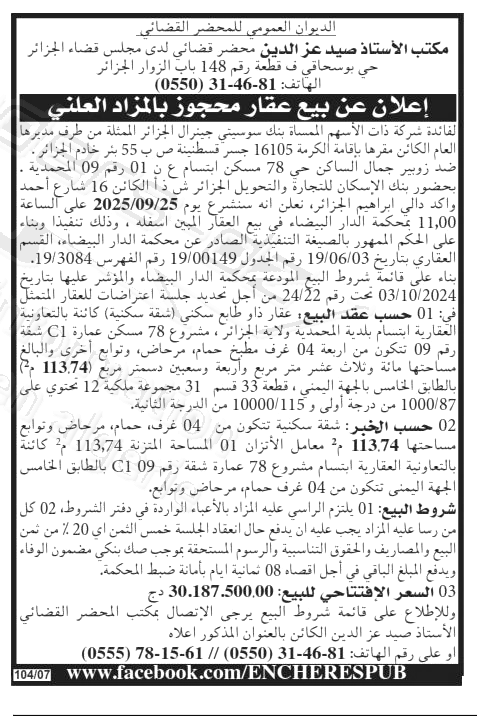 الديوان العمومي للمحضر القضائي
مكتب الأستاذ صيد عز الدين محضر قضائي لدى مجلس قضاء الجزائر
حي بوسحاقي ف قطعة رقم 148 باب الزوار الجزائر
الهاتف: 81-46-31 (0550)
إعلان عن بيع عقار محجوز بالمزاد العلني
لفائدة شركة ذات الأسهم المسماة بنك سوسيتي جينرال الجزائر الممثلة من طرف مديرها
العام الكائن مقرها بإقامة الكرمة 16105 جسر قسنطينة ص ب 55 بئر خادم الجزائر.
ضد زوبير جمال الساكن حي 78 مسكن ابتسام ع ن 01 رقم 09 المحمدية .
بحضور بنك الإسكان للتجارة والتحويل الجزائر ش ذ أ الكائن 16 شارع أحمد
واكد دالي ابراهيم الجزائر، نعلن انه سنشرع يوم 2025/09/25 على الساعة
11,00 بمحكمة الدار البيضاء في بيع العقار المبين اسفله ، وذلك تنفيذا وبناء
على الحكم الممهور بالصيغة التنفيذية الصادر عن محكمة الدار البيضاء، القسم
العقاري بتاريخ 19/06/03 رقم الجدول 19/00149 رقم الفهرس 19/3084.
بناء على قائمة شروط البيع المودعة بمحكمة الدار البيضاء والمؤشر عليها بتاريخ
03/10/2024 تحت رقم 24/22 من أجل تحديد جلسة اعتراضات للعقار المتمثل
في: 01 حسب عقد البيع: عقار ذاو طابع سكني (شقة سكنية) كائنة بالتعاونية
العقارية ابتسام بلدية المحمدية ولاية الجزائر ، مشروع 78 مسكن عمارة C1 شقة
رقم 09 تتكون من اربعة 04 غرف مطبخ حمام، مرحاض، وتوابع أخرى والبالغ
مساحتها مائة وثلاث عشر متر مربع وأربعة وسعبين دسمتر مربع (113,74 م²)
بالطابق الخامس بالجهة اليمنى ، قطعة 33 قسم 31 مجموعة ملكية 12 تحتوي على
1000/87 من درجة أولى و 10000/115 من الدرجة الثانية.
02 حسب الخبر: شقة سكنية تتكون من 04 غرف، حمام، مرحاض وتوابع
مساحتها 113,74 م² معامل الأتزان 01 المساحة المتزنة 113,74 م² كائنة
بالتعاونية العقارية ابتسام مشروع 78 عمارة شقة رقم 09 C1 بالطابق الخامس
الجهة اليمنى تتكون من 04 غرف حمام، مرحاض وتوابع.
شروط البيع: 01 يلتزم الراسي عليه المزاد بالأعباء الواردة في دفتر الشروط، 02 كل
من رسا عليه المزاد يجب عليه ان يدفع حال انعقاد الجلسة خمس الثمن اي 20 ٪ من ثمن
البيع والمصاريف والحقوق التناسبية والرسوم المستحقة بموجب صك بنكي مضمون الوفاء
ويدفع المبلغ الباقي في أجل اقصاه 08 ثمانية ايام بأمانة ضبط المحكمة.
03 السعر الإفتتاحي للبيع: 30.187.500,00 دج
وللإطلاع على قائمة شروط البيع يرجى الإتصال بمكتب المحضر القضائي
الأستاذ صيد عز الدين الكائن بالعنوان المذكور اعلاه
او على رقم الهاتف: 81-46-31 (0550) // 61-15-78 (0555)
104/07 www.facebook.com/ENCHERESPUB